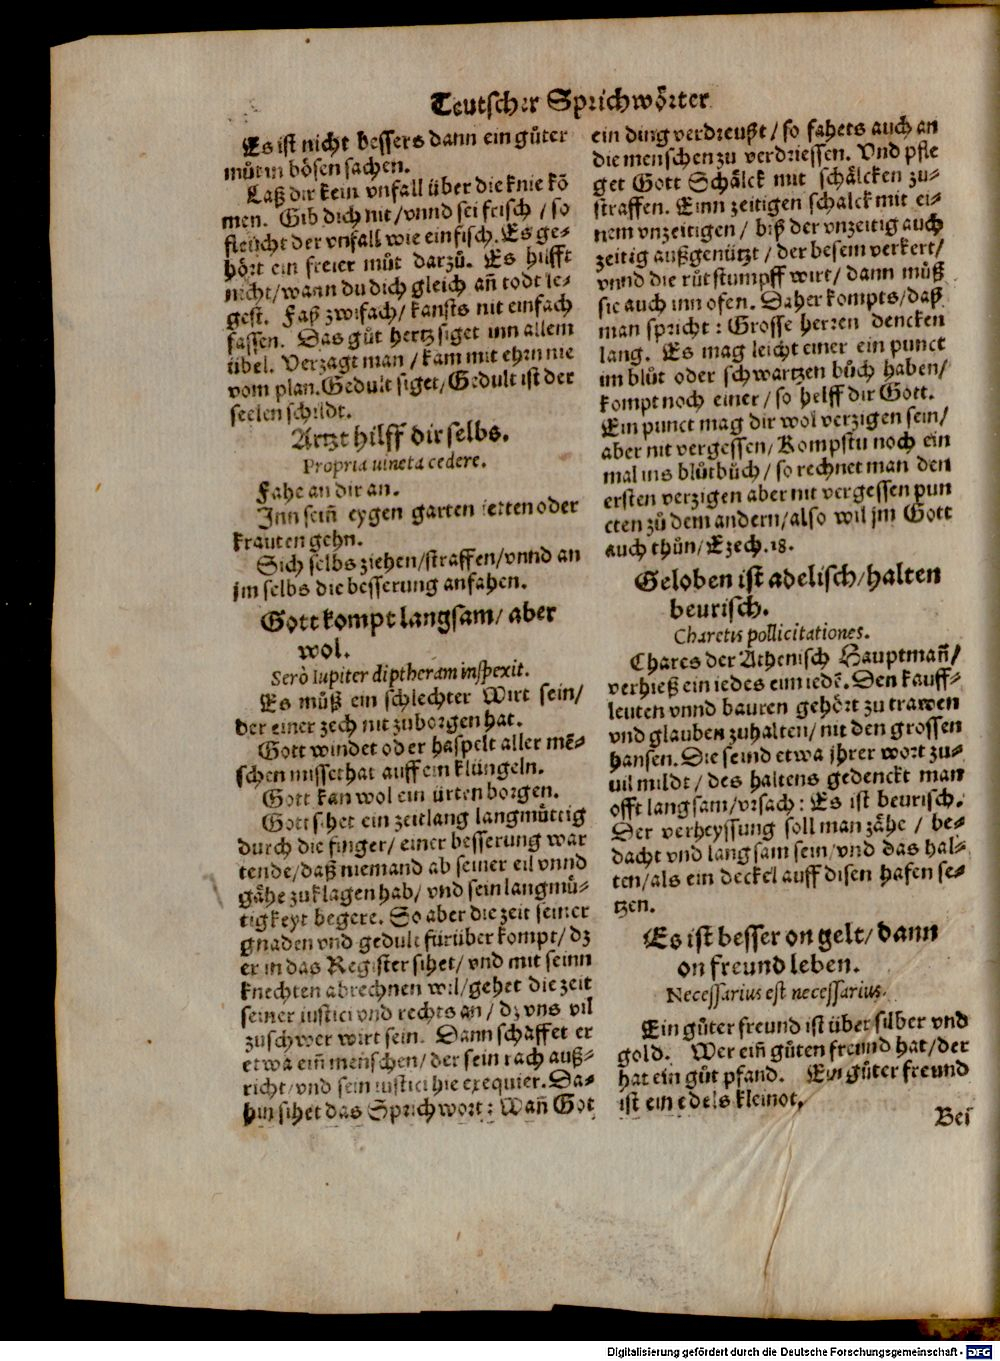 Teutscher Sprichwörter
Es ist nicht bessers dann ein gůter
můt in bösen sachen.
Laß dir kein vnfall über die knie kõ
men. Gib dich nit / vnnd sei frisch / so
fleücht der vnfall wie ein fisch. Es ge-
hört ein freier můt darzů. Es hilfft
nicht / wann du dich gleich añ todt le-
gest. Faß zwifach / kansts nit einfach
fassen. Das gůt hertz siget inn allem
übel. Verzagt man / kam mit ehrn nie
vom plan. Gedult siget / Gedult ist der
seelen schildt.
Artzt hilff dir selbs.
Propria uineta cedere.
Fahe an dir an.
Inn seiñ eygen garten ietten oder
krauten gehn.
Sich selbs ziehen / straffen / vnnd an
jm selbs die besserung anfahen.
Gott kompt langsam / aber
wol.
Serò Iupiter diptheram inspexit.
Es můß ein schlechter Wirt sein /
der einer zech nit zuborgen hat.
Gott windet oder haspelt aller mẽ-
schen missethat auff ein klüngeln.
Gott kan wol ein ürten borgen.
Gott sihet ein zeitlang langmůttig
durch die finger / einer besserung war
tende / daß niemand ab seiner eil vnnd
gähe zuklagen hab / vnd sein langmů-
tigkeyt begere. So aber die zeit seiner
gnaden vnd gedult fürüber kompt / dz
er in das Register sihet / vnd mit seinn
knechten abrechnen wil / gehet die zeit
seiner iustici vnd rechts an / dz vns vil
zuschwer wirt sein. Dann schaffet er
etwa eiñ menschen / der sein rach auß-
richt / vnd sein iustici hie exequier. Da-
hin sihet das Sprichwort : Wañ Got
ein ding verdreußt / so fahets auch an
die menschen zu verdriessen. Vnd pfle
get Gott Schälck mit schälcken zu-
straffen. Einn zeitigen schalck mit ei-
nem vnzeitigen / biß der vnzeitig auch
zeitig außgenützt / der besem verkert /
vnnd die růt stumpff wirt / dann můß
sie auch inn ofen. Daher kompts / daß
man spricht : Grosse herren dencken
lang. Es mag leicht einer ein punct
im blůt oder schwartzen bůch haben /
kompt noch einer / so helff dir Gott.
Ein punct mag dir wol verzigen sein /
aber nit vergessen / Kompstu noch ein
mal ins blůtbůch / so rechnet man den
ersten verzigen aber nit vergessen pun
cten zů dem andern / also wil jm Gott
auch thůn / Ezech. 18.
Geloben ist adelisch / halten
beurisch.
Charetis pollicitationes.
Chares der Athenisch Hauptmañ /
verhieß ein iedes eim iedẽ. Den kauff-
leuten vnnd bauren gehört zu trawen
vnd glauben zuhalten / nit den grossen
hansen. Die seind etwa jhrer wort zu-
uil mildt / des haltens gedenckt man
offt langsam / vrsach : Es ist beurisch.
Der verheyssung soll man zähe / be-
dacht vnd langsam sein / vnd das hal-
ten / als ein deckel auff disen hafen se-
tzen.
Es ist besser on gelt / dann
on freund leben.
Necessarius est necessarius.
Ein gůter freund ist über silber vnd
gold. Wer eiñ gůten freund hat / der
hat ein gůt pfand. Ein gůter freund
ist ein edels kleinot.
Bei
Digitalisierung gefördert durch die Deutsche Forschungsgemeinschaft - DFG